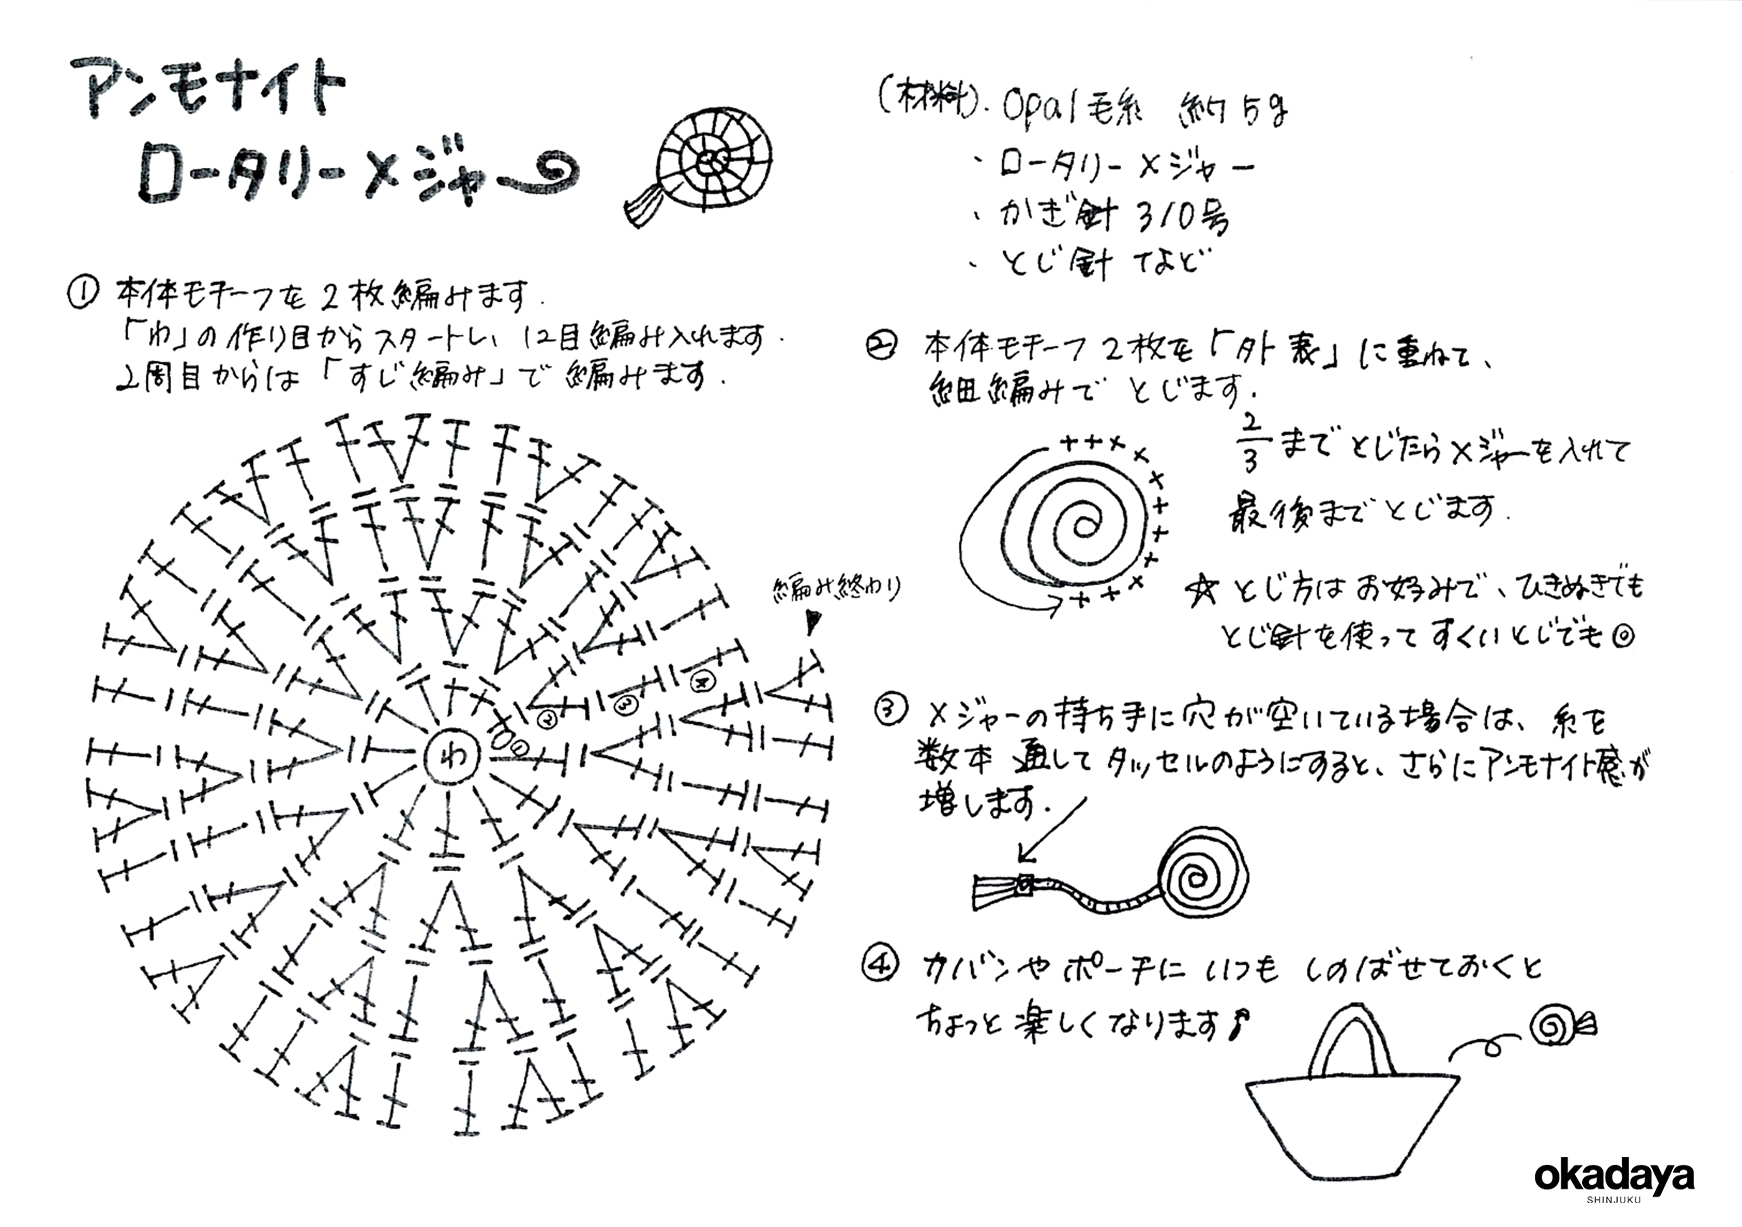 アンモナイト
ロータリーメジャー
(材料). Opal毛糸 約5g
、ロータリーメジャー
、かぎ針 3/0号
、とじ針 など
① 本体モチーフを2枚編みます.
「わ」の作り目からスタートし、12目編み入れます.
2周目からは「すじ編み」で編みます.
編み終わり
④
③
②
①
わ
② 本体モチーフ2枚を「外表」に重ねて、
細編みでとじます.
2/3までとじたらメジャーを入れて
最後までとじます.
☆とじ方はお好みで、ひきぬきでも
とじ針を使ってすくいとじでも◎
③ メジャーの持ち手に穴が空いている場合は、糸を
数本通してタッセルのようにすると、さらにアンモナイト感が
増します.
④ カバンやポーチにいつもしのばせておくと
ちょっと楽しくなります♪
okadaya
SHINJUKU